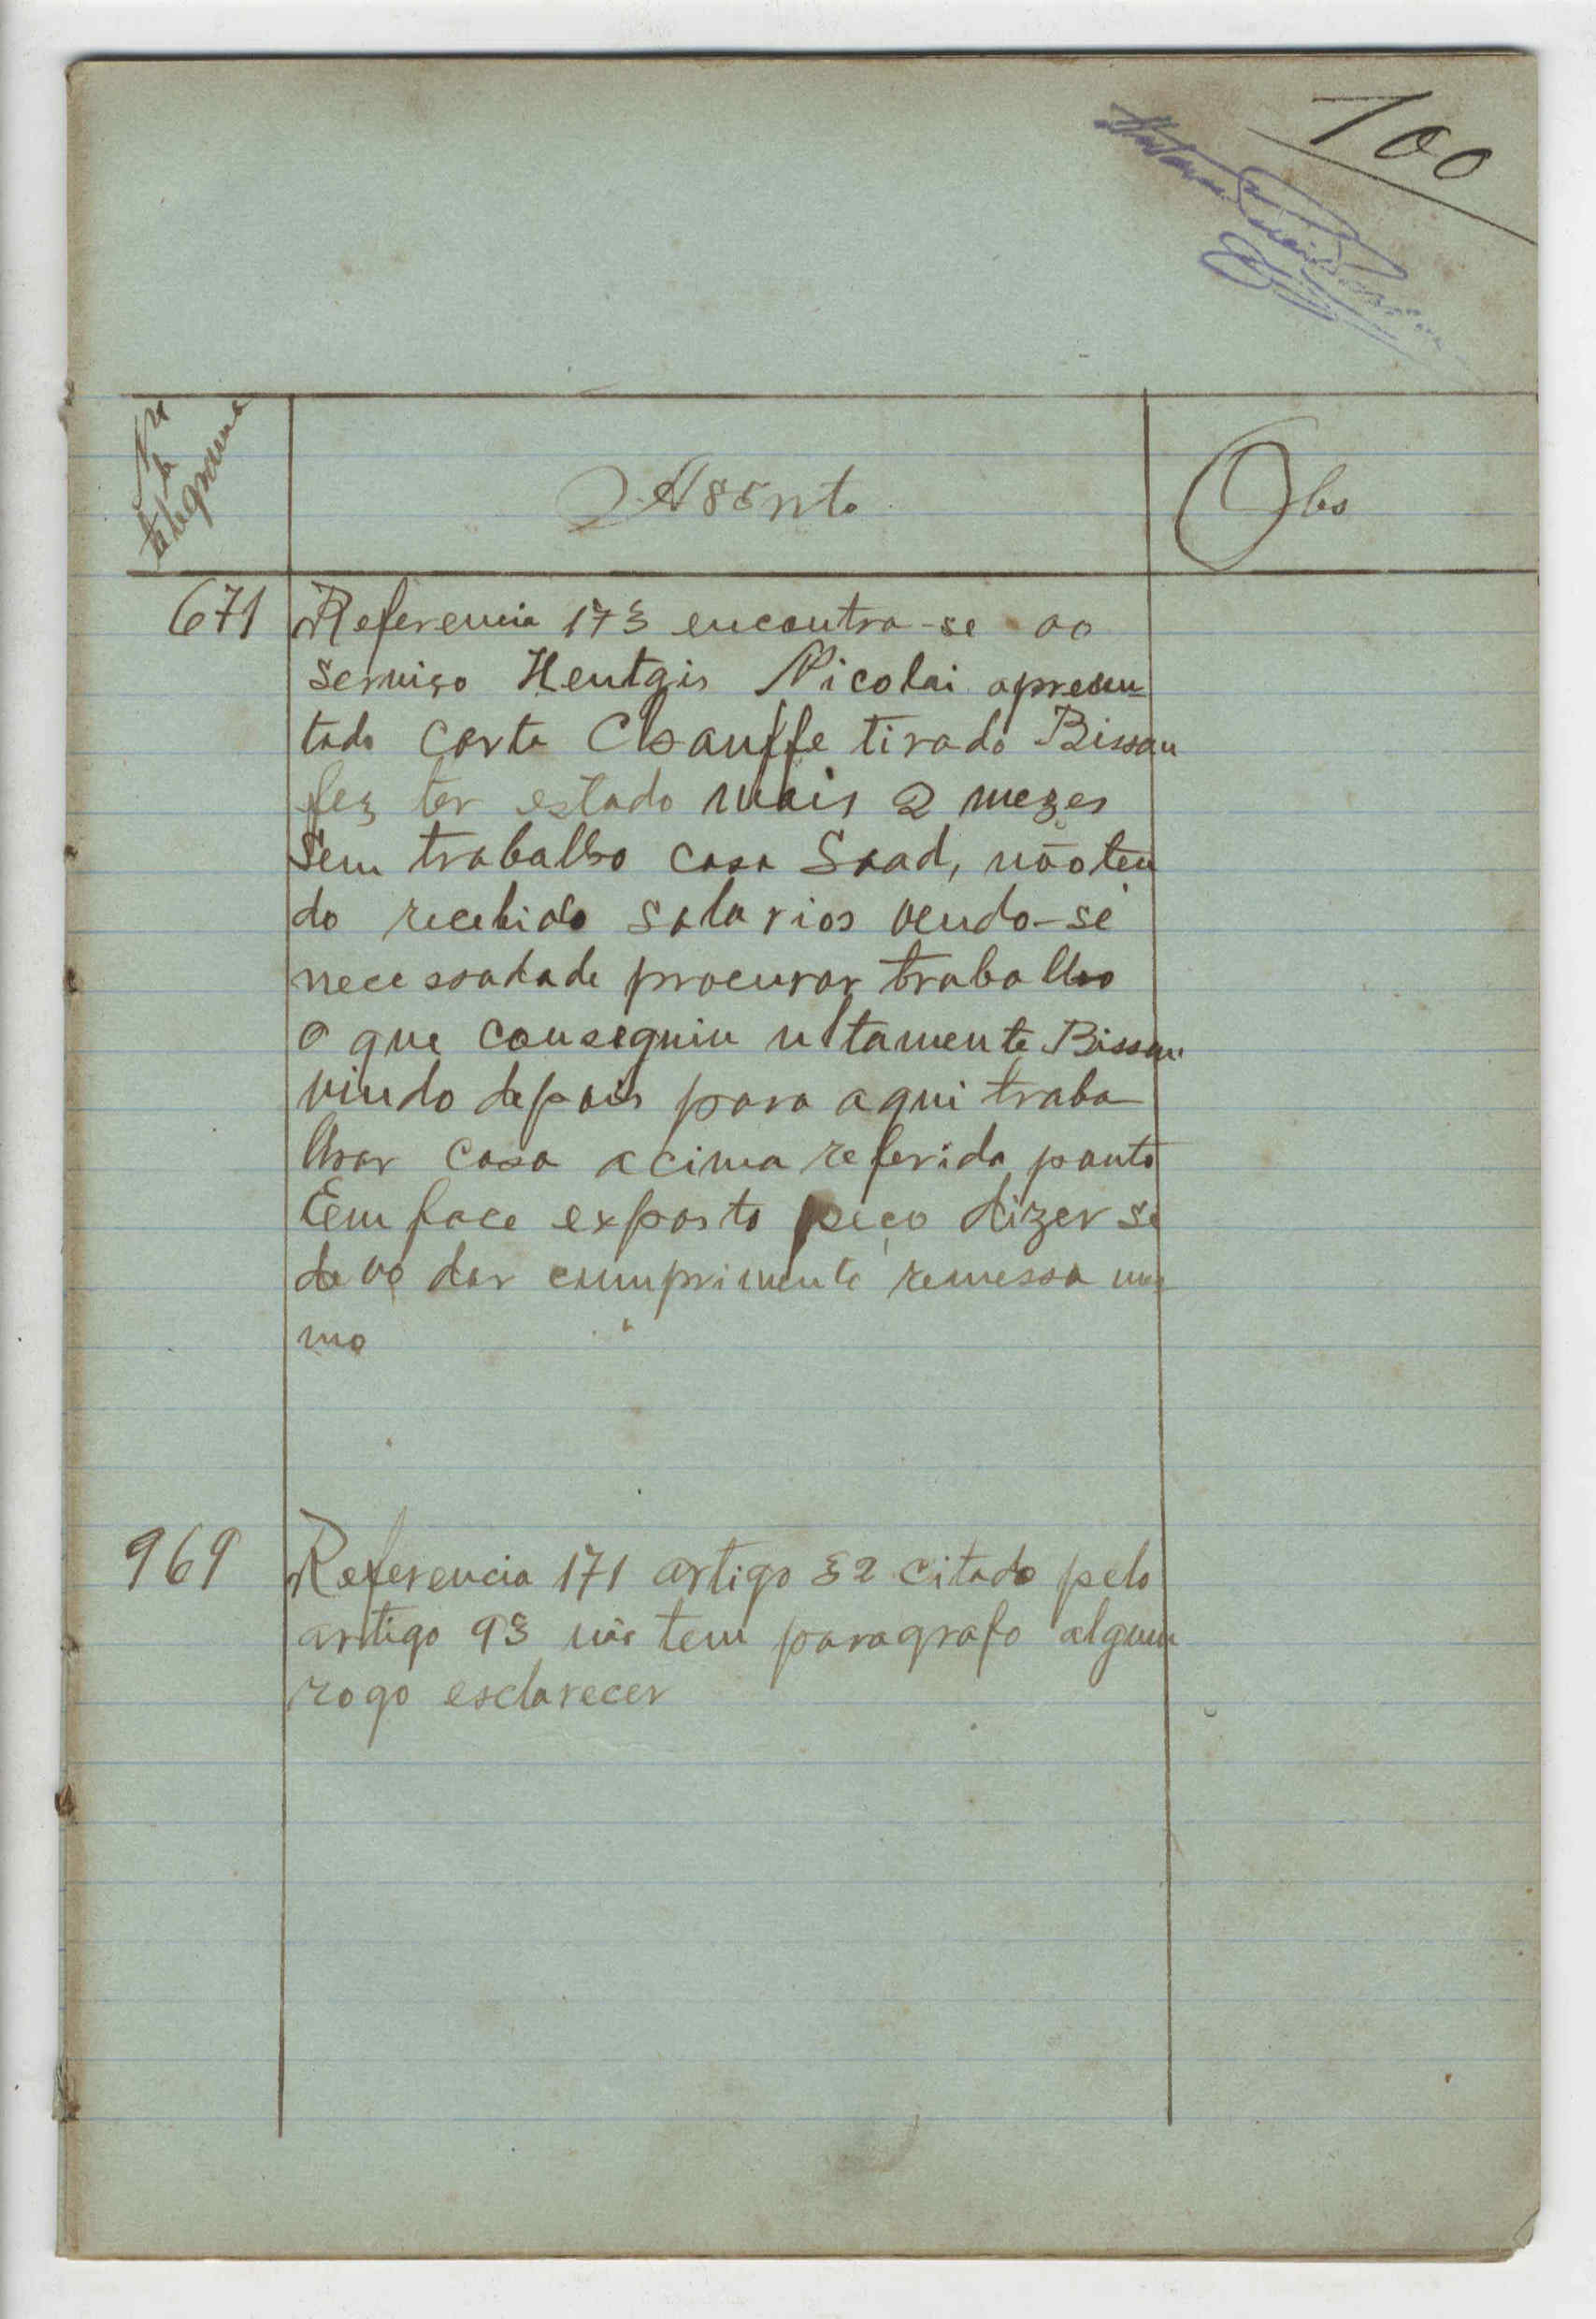 100
Nº
do
telegrama
Assunto
Obs
671
Referencia 173 encontra-se ao
serviço Hentgis Nicolai apresen-
tado carta Chauffe tirado Bissau
fez ter estado mais 2 mezes
Sem trabalho casa Saad, não ten
do recebido salarios vendo-se
necessadade procurar trabalho
O que conseguiu ultamente Bissau
vindo depois para aqui traba
lhar casa acima referida ponto
Em face exposto peço dizer se
devo dar cumprimento remessa mes
mo
969
Referencia 171 artigo 32 citado pelo
artigo 93 não tem paragrafo algum
rogo esclarecer